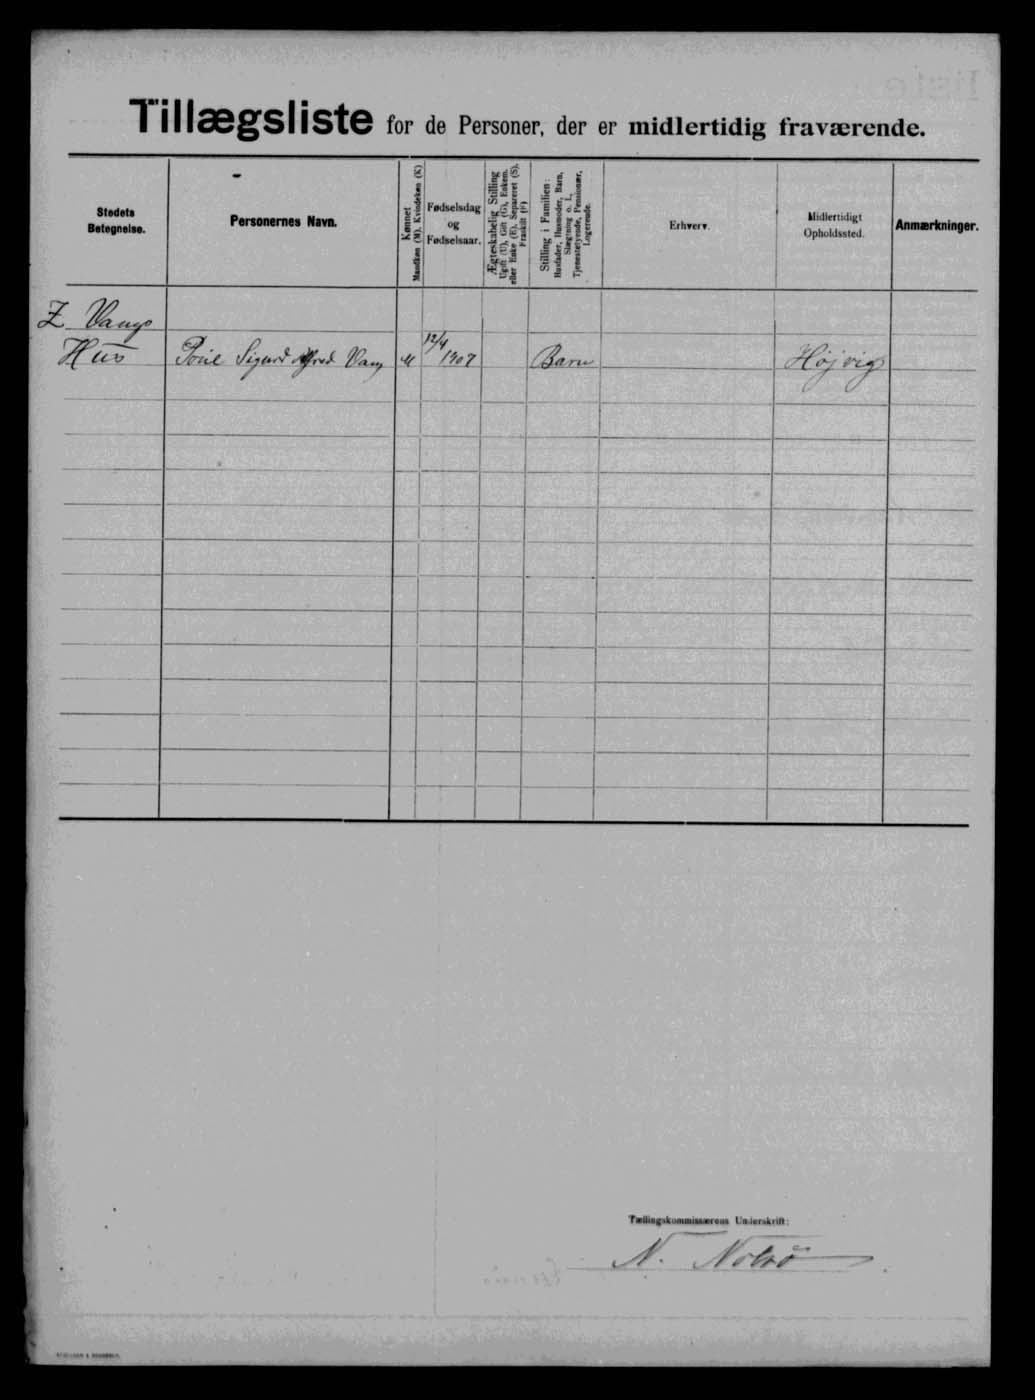 Tillægsliste for de Personer, der er midlertidig fraværende.
Stedets Betegnelse.
Personernes Navn.
Kønnet
Mandkøn (M). Kvindekøn (K)
Fødselsdag
og
Fødselsaar.
Ægteskabelig Stilling
Ugift (U), Gift (G), Enkem.
eller Enke (E), Separeret (S),
Fraskilt (F)
Stilling i Familien:
Husfader, Husmoder, Barn,
Slægtning o. l.,
Tjenestetyende, Pensionær,
Logerende.
Erhverv.
Midlertidigt
Opholdssted.
Anmærkninger.
Z. Vangs
Hus Poul Sigurd Alfred Vang M 12/4 1907 Barn Højvig
Tællingskommissærens Underskrift:
N. Nolsö